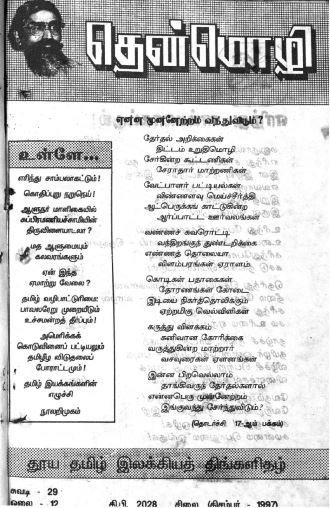 தென்மொழி
என்ன முன்னேற்றம் வந்துவிடும்?
தேர்தல் அறிக்கைகள்
திட்டம் உறுதிமொழி
சேர்கின்ற கூட்டணிகள்
சேராதார் மாற்றணிகள்
வேட்பாளர் பட்டியல்கள்
விண்ணளவு மெய்ச்சீர்த்தி
ஆட்பெருக்கங் காட்டுகின்ற
ஆர்ப்பாட்ட ஊர்வலங்கள்
வண்ணச் சுவரொட்டி
வந்திறங்குந் துண்டறிக்கை
எண்ணத் தொலையா
விளம்பரங்கள் ஏராளம்
கொடிகள் பதாகைகள்
தோரணங்கள் கோடை
இடியை நிகர்த்தொலிக்கும்
ஏற்றமிகு வெல்விளிகள்
கருத்து விளக்கம்
கனிவான கோரிக்கை
வருத்துகின்ற மாற்றார்
வசவுரைகள் ஏளனங்கள்
இன்ன பிறவெல்லாம்
தாங்கிவருந் தேர்தல்களால்
என்னபெரு முன்னேற்றம்
இங்குவந்து சேர்ந்துவிடும்?
(தொடர்ச்சி 17-ஆம் பக்கம்)
உள்ளே...
எரிந்து சாம்பலாகட்டும்!
கொதிப்புறு நறுநெய்!
ஆளுநர் மாளிகையில்
சுப்பிரமணியச்சாமியின்
திருவிளையாடலா?
மத ஆளுமையும்
கலவரங்களும்
ஏன் இந்த
ஏமாற்று வேலை?
தமிழ் வழிபாட்டுரிமை:
பாவலரேறு முறையீடும்
உச்சமன்றத் தீர்ப்பும்!
அமெரிக்கக்
கொடுவினைப் பட்டியலும்
தமிழீழ விடுதலைப்
போராட்டமும்!
தமிழ் இயக்கங்களின்
எழுச்சி
நூலறிமுகம்
தூய தமிழ் இலக்கியத் திங்களிதழ்
சுவடி - 29
ஓலை - 12 தி.பி. 2028 சிலை (திசம்பர் - 1997)